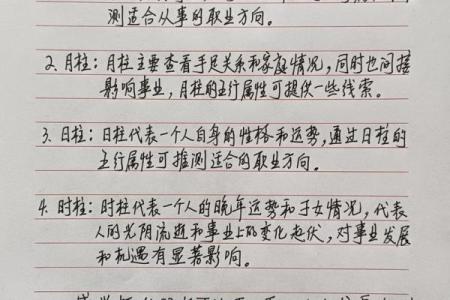 测适合从事的职业方向。
2. 月柱：月柱主要查看手足关系和家庭情况，同时也间接
影响事业，月柱的五行属性可提供一些线索。
3. 日柱：日柱代表一个人自身的性格和运势，通过日柱的
五行属性可推测适合的职业方向。
4. 时柱：时柱代表一个人的晚年运势和子女情况，代表
人的光阴流逝和事业上的变化起伏，对事业发展
和机遇有显著影响。